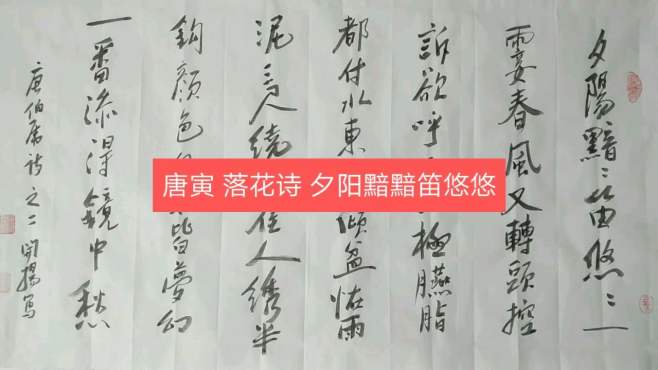 夕陽黯〻笛悠〻一
霎春風又轉頭控
訴欲呼極臙脂
都付水東傾盆怪雨
泥三尺繞佳人綉半
鈎顏色皆夢幻
一番添得鏡中愁
唐伯虎詩之二
唐寅 落花诗 夕阳黯黯笛悠悠